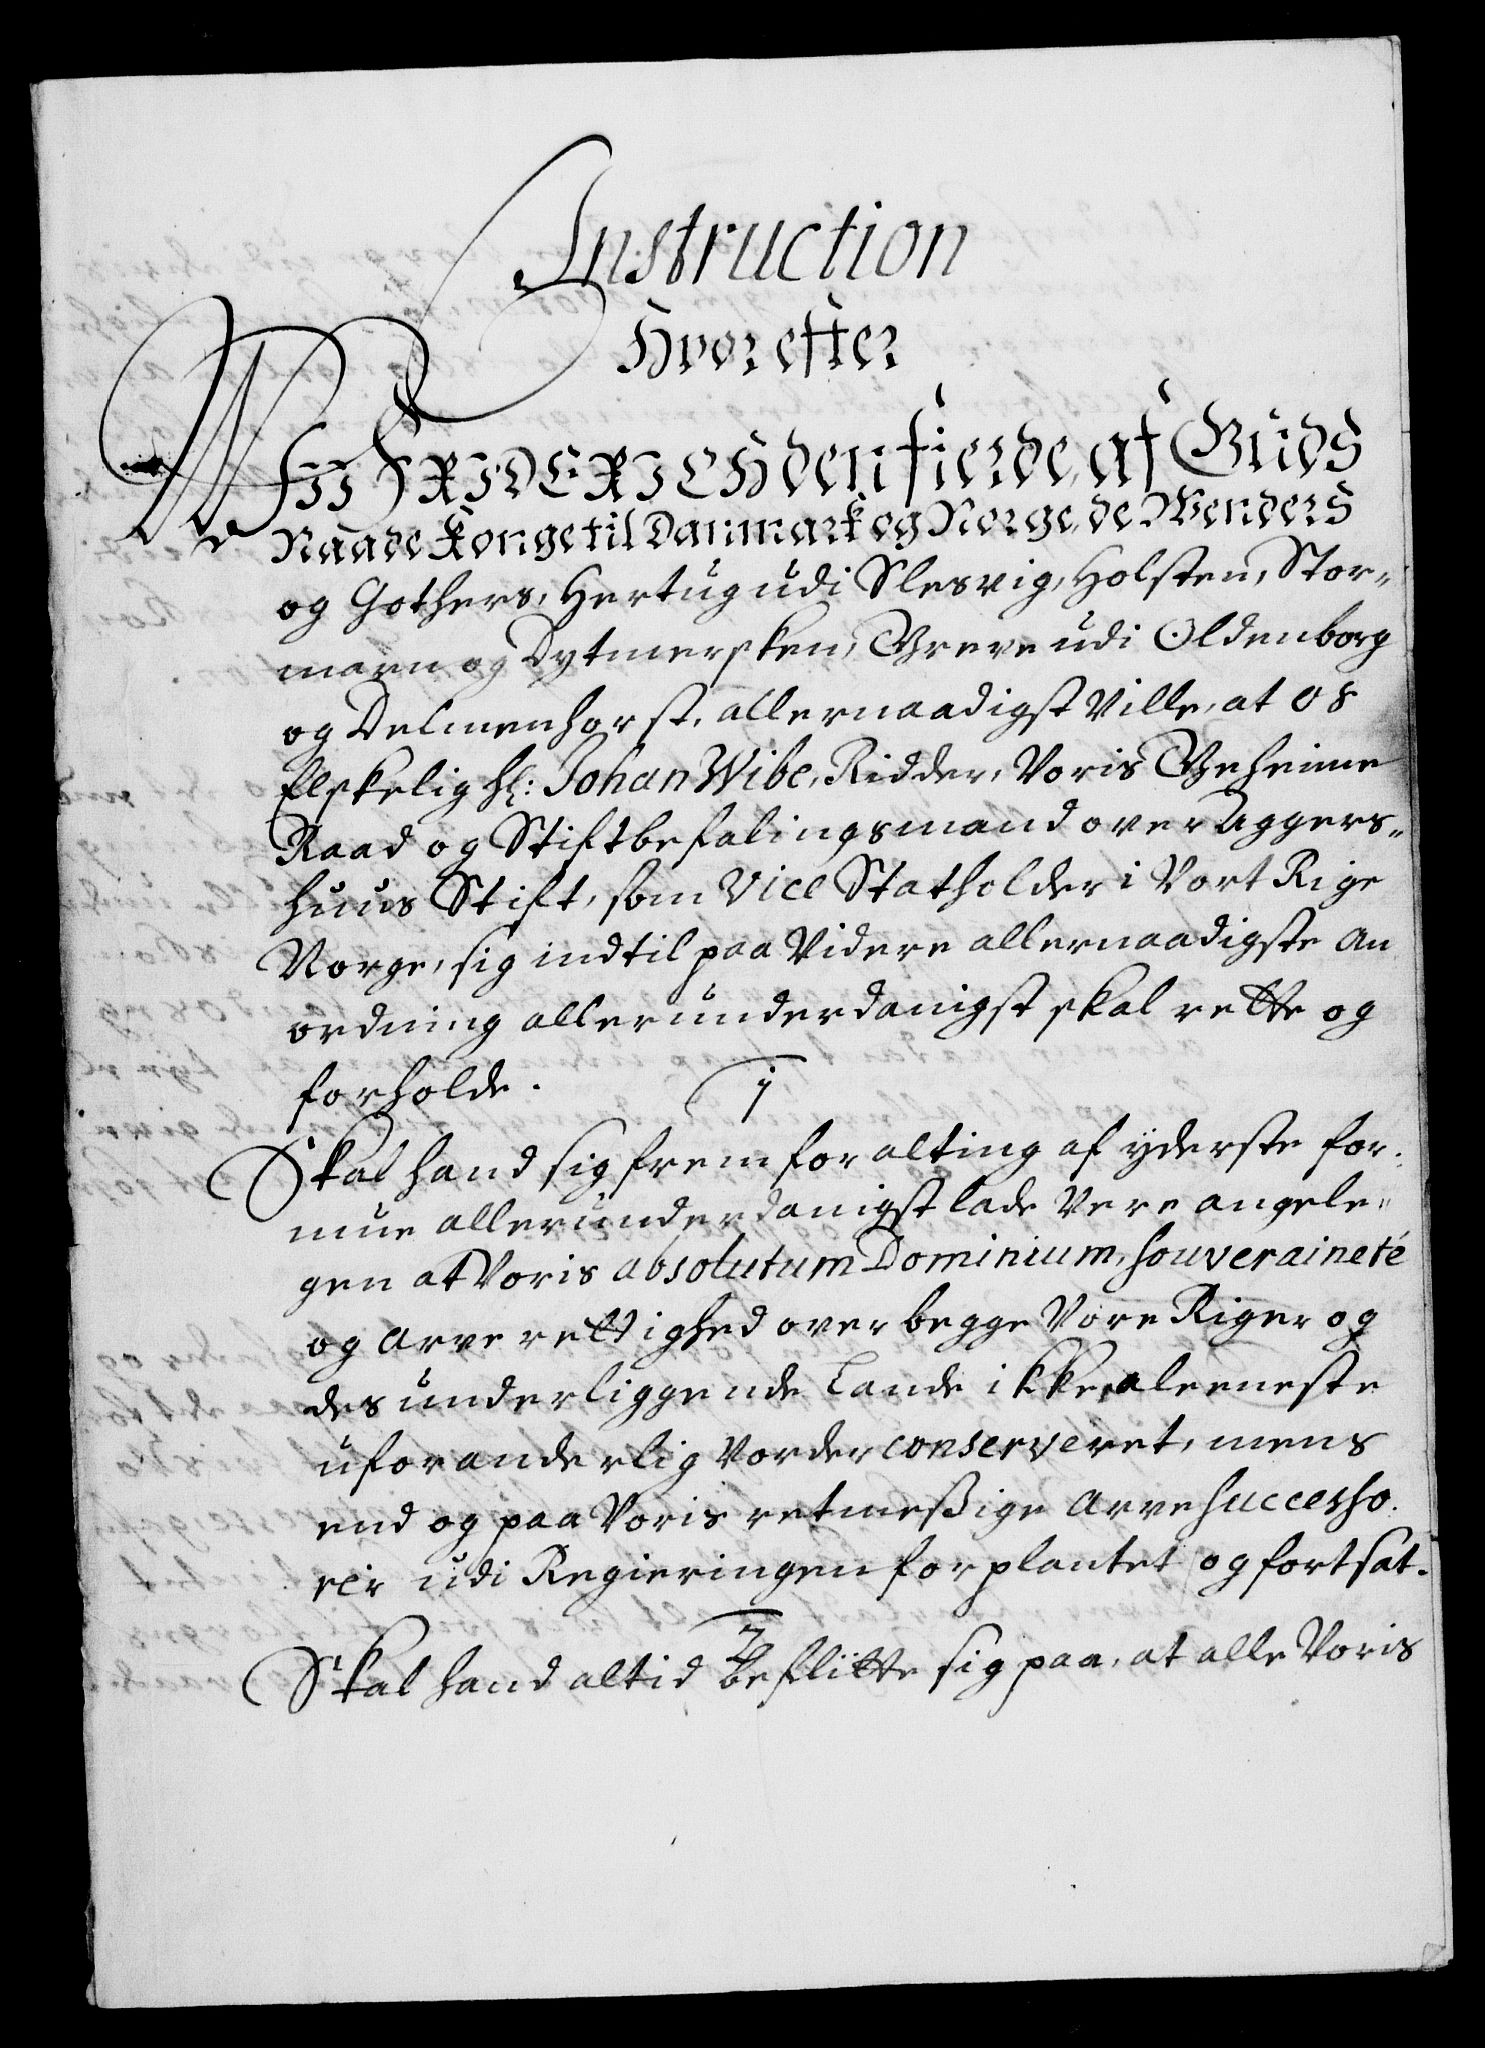 Instruction
Hvorefter
WJi FRIDERICH den fierde, af Guds
Naade Konge til Danmark og Norge, de Wenders
og Gothers, Hertug udi Slesvig, Holsten, Stor-
marn og Dytmersken, Greve udi Oldenborg
og Delmenhorst, allernaadigst Ville, at os
Elskelig hl: Johan Wibe, Ridder, Voris Geheime
Raad og Stiftbefalingsmand over Aggers-
huus Stift, som Vice Statholder i Vort Rige
Norge, sig indtil paa Videre allernaadigste An
ordning allerunderdanigst skal rette og
forholde.
1
Skal hand sig frem for alting af yderste for-
mue allerunderdanigst lade Vere angele-
gen at Voris absolutum Dominium, souveraineté
og Arverettighed over begge Vore Riger og
des underliggende Lande ikke aleeneste
uforanderlig Vorder conserveret, mens
end og paa Voris retmeßige Arve successo-
reir udi Regieringen forplantet og fortsat.
2
Skal hand altid beflitte sig paa, at alle Voris